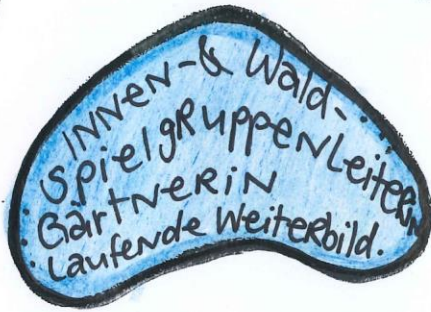 Innen- & Wald-
SpielgRuppenLeiteRin
GäRtNeRiN
Laufende WeiteRbild.